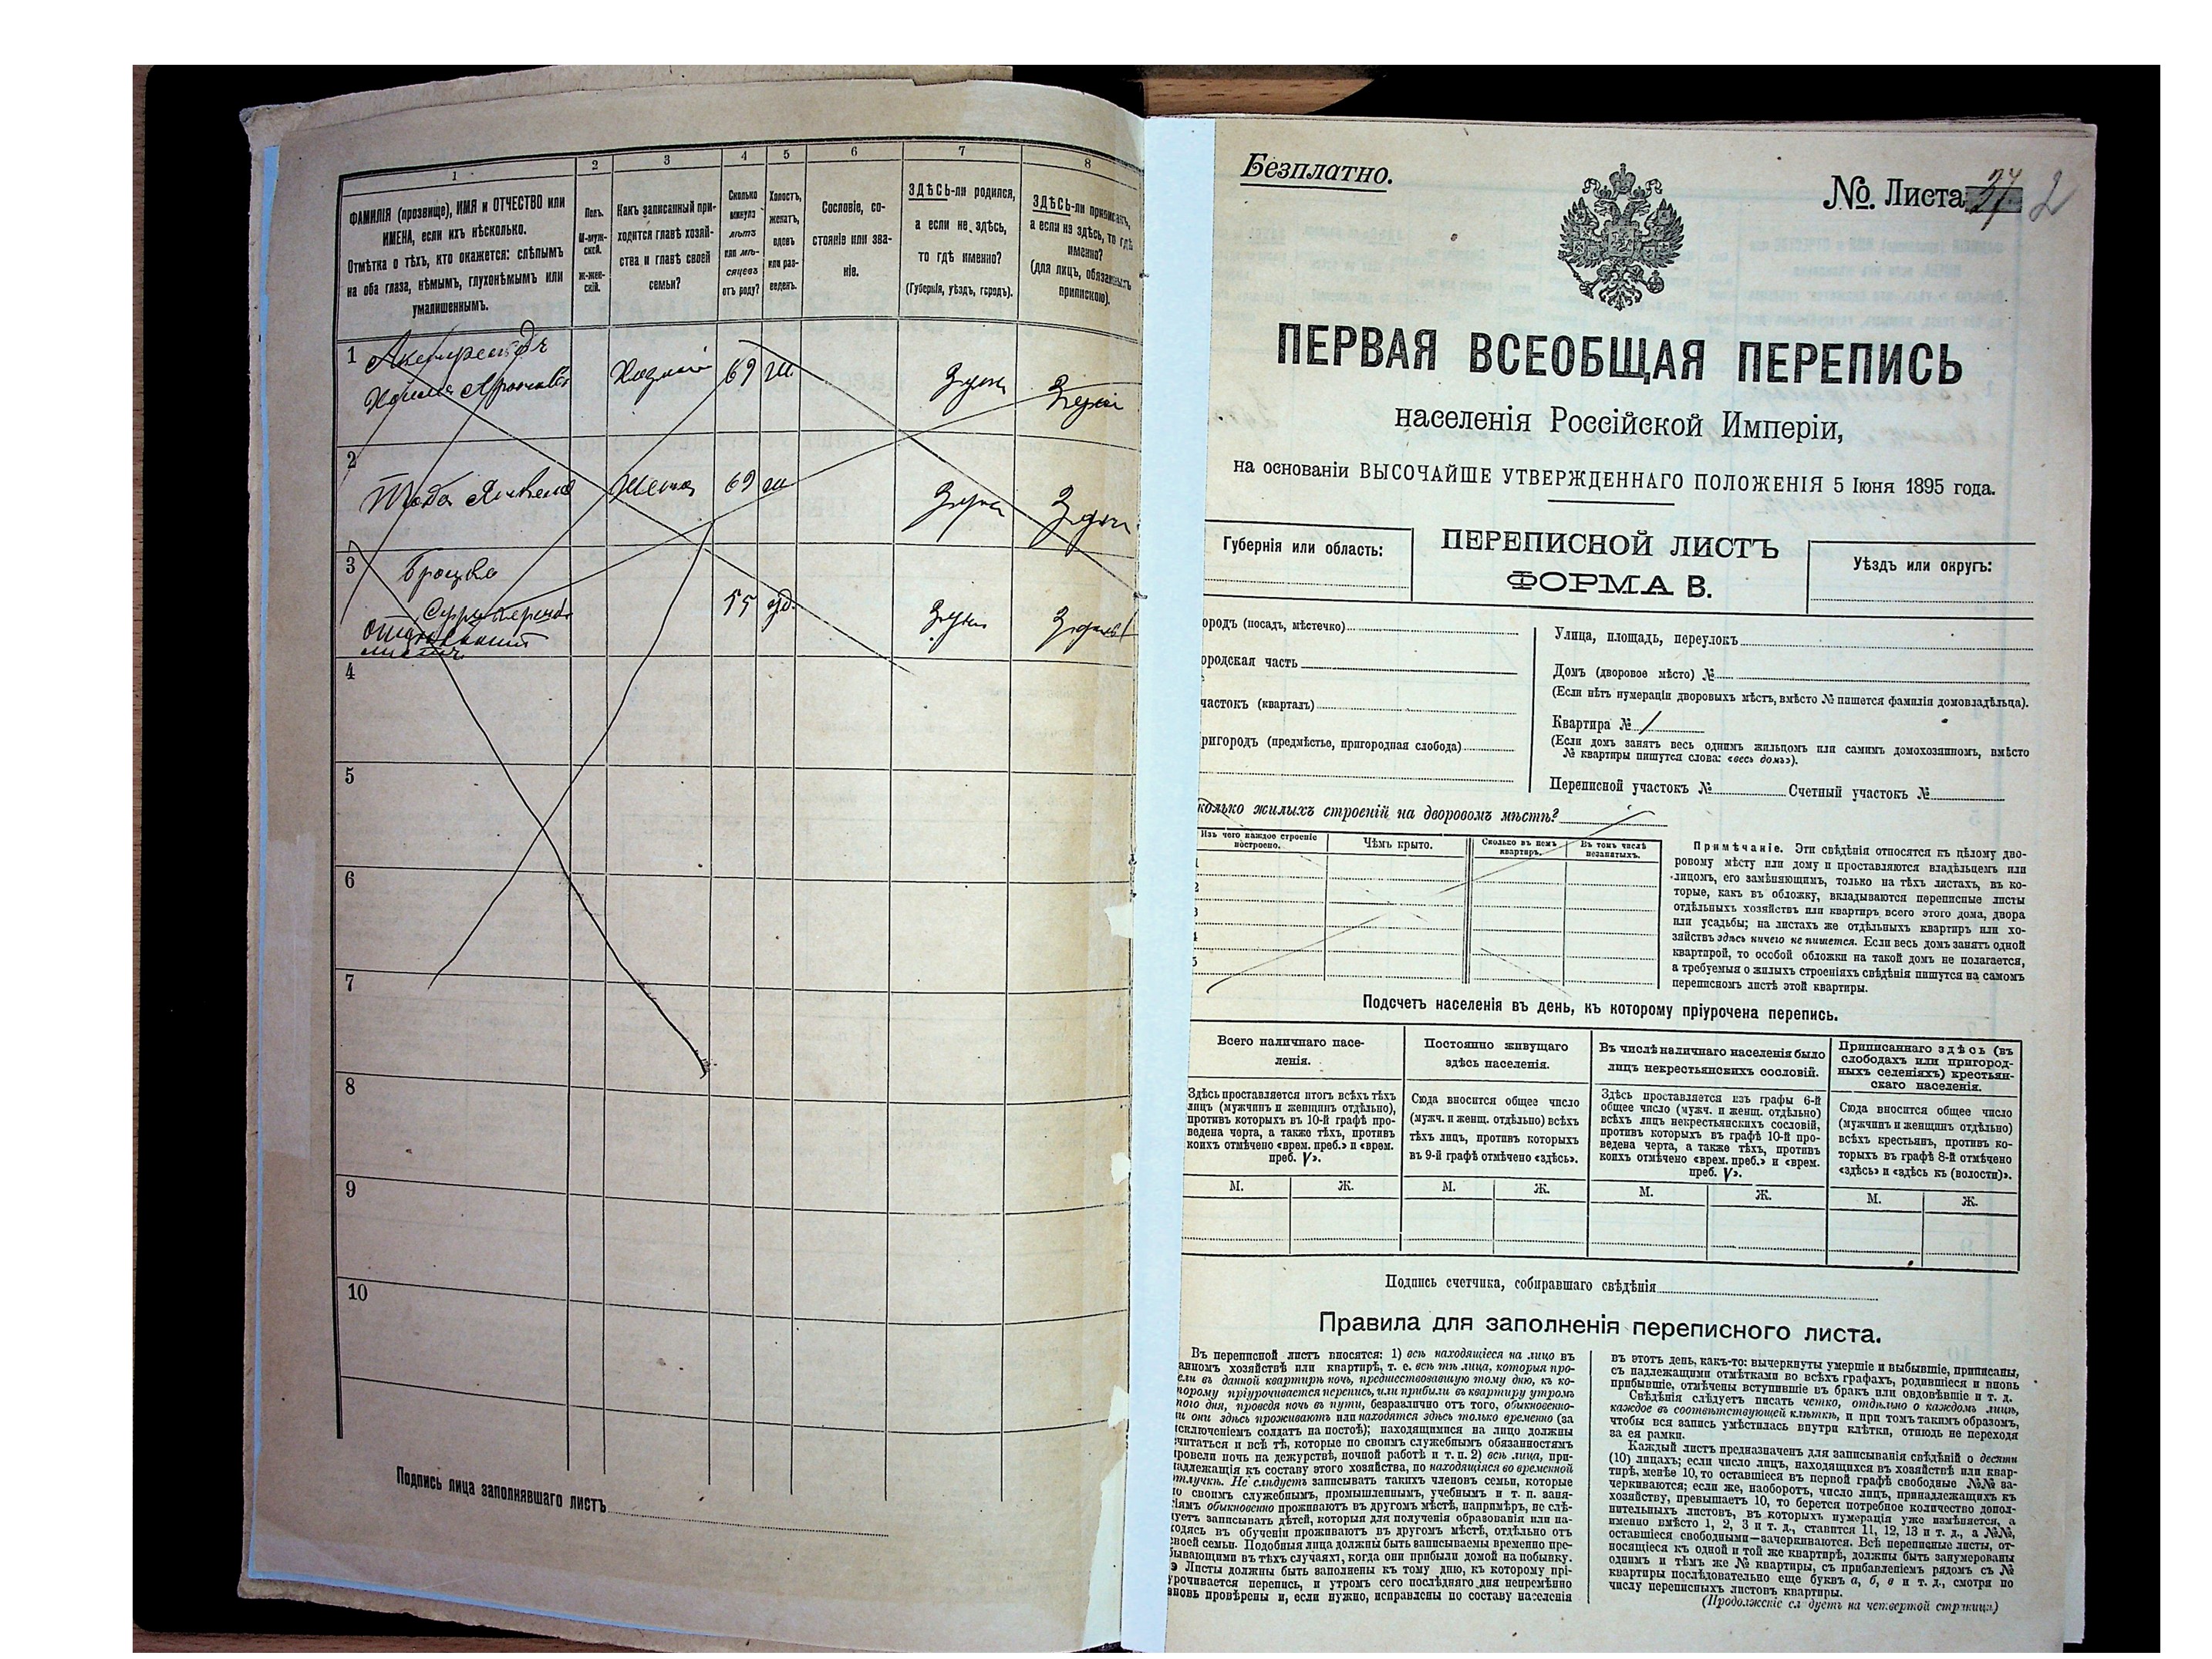 1
2
3
4
5
6
7
8
ФАМИЛІЯ (прозвище), ИМЯ и ОТЧЕСТВО или
ИМЕНА, если ихъ нѣсколько.
Отмѣтка о тѣхъ, кто окажется: слѣпымъ
на оба глаза, нѣмымъ, глухонѣмымъ или
умалишеннымъ.
Полъ.
М-муж-
ской.
ж-жен-
скій.
Какъ записанный при-
ходится главѣ хозяй-
ства и главѣ своей
семьи?
Сколько
минуло
лѣтъ
или мѣ-
сяцевъ
отъ роду?
Холостъ,
женатъ,
вдовъ
или раз-
веденъ.
Сословіе, со-
стояніе или зва-
ніе.
ЗДѢСЬ-ли родился,
а если не здѣсь,
то гдѣ именно?
(Губернія, уѣздъ, городъ).
ЗДѢСЬ-ли приписанъ,
а если не здѣсь, то гдѣ
именно?
(для лицъ, обязанныхъ
припискою).
1
69
2
Жена 69
3
55
4
5
6
7
8
9
10
Подпись лица заполнявшаго листъ
Безплатно.
№. Листа 37 2
ПЕРВАЯ ВСЕОБЩАЯ ПЕРЕПИСЬ
населенія Россійской Имперіи,
на основаніи ВЫСОЧАЙШЕ УТВЕРЖДЕННАГО ПОЛОЖЕНІЯ 5 Іюня 1895 года.
Губернія или область:
ПЕРЕПИСНОЙ ЛИСТЪ
ФОРМА В.
Уѣздъ или округъ:
ородъ (посадъ, мѣстечко)
ородская часть
частокъ (кварталъ)
ригородъ (предмѣстье, пригородная слобода)
Улица, площадь, переулокъ
Домъ (дворовое мѣсто) №
(Если нѣтъ нумераціи дворовыхъ мѣстъ, вмѣсто № пишется фамилія домовладѣльца).
Квартира № 1
(Если домъ занятъ весь однимъ жильцомъ или самимъ домохозяиномъ, вмѣсто
№ квартиры пишутся слова: «весь домъ»).
Переписной участокъ № Счетный участокъ №
колько жилыхъ строеній на дворовомъ мѣстѣ?
Изъ чего каждое строеніе
построено.
Чѣмъ крыто.
Сколько въ немъ
квартиръ.
Въ томъ числѣ
незанятыхъ.
1
2
3
4
5
Примѣчаніе. Эти свѣдѣнія относятся къ цѣлому дво-
ровому мѣсту или дому и проставляются владѣльцемъ или
лицомъ, его замѣняющимъ, только на тѣхъ листахъ, въ ко-
торые, какъ въ обложку, вкладываются переписные листы
отдѣльныхъ хозяйствъ или квартиръ всего этого дома, двора
или усадьбы; на листахъ же отдѣльныхъ квартиръ или хо-
зяйствъ здѣсь ничего не пишется. Если весь домъ занятъ одной
квартирой, то особой обложки на такой домъ не полагается,
а требуемыя о жилыхъ строеніяхъ свѣдѣнія пишутся на самомъ
переписномъ листѣ этой квартиры.
Подсчетъ населенія въ день, къ которому пріурочена перепись.
Всего наличнаго насе-
ленія.
Здѣсь проставляется итогъ всѣхъ тѣхъ
лицъ (мужчинъ и женщинъ отдѣльно),
противъ которыхъ въ 10-й графѣ про-
ведена черта, а также тѣхъ, противъ
коихъ отмѣчено «врем. преб.» и «врем.
преб. V».
Постоянно живущаго
здѣсь населенія.
Сюда вносится общее число
(мужч. и женщ. отдѣльно) всѣхъ
тѣхъ лицъ, противъ которыхъ
въ 9-й графѣ отмѣчено «здѣсь».
Въ числѣ наличнаго населенія было
лицъ некрестьянскихъ сословій.
Здѣсь проставляется изъ графы 6-й
общее число (мужч. и женщ. отдѣльно)
всѣхъ лицъ некрестьянскихъ сословій,
противъ которыхъ въ графѣ 10-й про-
ведена черта, а также тѣхъ, противъ
коихъ отмѣчено «врем. преб.» и «врем.
преб. V».
Приписаннаго здѣсь (въ
слободахъ или пригород-
ныхъ селеніяхъ) крестьян-
скаго населенія.
Сюда вносится общее число
(мужчинъ и женщинъ отдѣльно)
всѣхъ крестьянъ, противъ ко-
торыхъ въ графѣ 8-й отмѣчено
«здѣсь» и «здѣсь къ (волости)».
М. Ж. М. Ж. М. Ж. М. Ж.
Подпись счетчика, собиравшаго свѣдѣнія
Правила для заполненія переписного листа.
Въ переписной листъ вносятся: 1) всѣ находящіеся на лицо въ
анномъ хозяйствѣ или квартирѣ, т. е. всѣ тѣ лица, которыя про-
ели въ данной квартирѣ ночь, предшествовавшую тому дню, къ ко-
торому пріурочивается перепись, или прибыли въ квартиру утромъ
того дня, проведя ночь въ пути, безразлично отъ того, обыкновенно-
и они здѣсь проживаютъ или находятся здѣсь только временно (за
сключеніемъ солдатъ на постоѣ); находящимися на лицо должны
читаться и всѣ тѣ, которые по своимъ служебнымъ обязанностямъ
ровели ночь на дежурствѣ, ночной работѣ и т. п. 2) всѣ лица, при-
адлежащія къ составу этого хозяйства, но находящіяся во временной
тлучкѣ. Не слѣдуетъ записывать такихъ членовъ семьи, которые
о своимъ служебнымъ, промышленнымъ, учебнымъ и т. п. заня-
іямъ обыкновенно проживаютъ въ другомъ мѣстѣ, напримѣръ, не слѣ-
уетъ записывать дѣтей, которыя для полученія образованія или на-
одясь въ обученіи проживаютъ въ другомъ мѣстѣ, отдѣльно отъ
воей семьи. Подобныя лица должны быть записываемы временно пре-
бывающими въ тѣхъ случаяхъ, когда они прибыли домой на побывку.
Листы должны быть заполнены къ тому дню, къ которому прі-
урочивается перепись, и утромъ сего послѣдняго дня непремѣнно
вновь провѣрены и, если нужно, исправлены по составу населенія
въ этотъ день, какъ-то: вычеркнуты умершіе и выбывшіе, приписаны,
съ надлежащими отмѣтками во всѣхъ графахъ, родившіеся и вновь
прибывшіе, отмѣчены вступившіе въ бракъ или овдовѣвшіе и т. д.
Свѣдѣнія слѣдуетъ писать четко, отдѣльно о каждомъ лицѣ,
каждое въ соотвѣтствующей клѣткѣ, и при томъ такимъ образомъ,
чтобы вся запись умѣстилась внутри клѣтки, отнюдь не переходя
за ея рамки.
Каждый листъ предназначенъ для записыванія свѣдѣній о десяти
(10) лицахъ; если число лицъ, находящихся въ хозяйствѣ или квар-
тирѣ, менѣе 10, то оставшіеся въ первой графѣ свободные №№ за-
черкиваются; если же, наоборотъ, число лицъ, принадлежащихъ къ
хозяйству, превышаетъ 10, то берется потребное количество допол-
нительныхъ листовъ, въ которыхъ нумерація уже измѣняется, а
именно вмѣсто 1, 2, 3 и т. д., ставится 11, 12, 13 и т. д., а №№,
оставшіеся свободными—зачеркиваются. Всѣ переписные листы, от-
носящіеся къ одной и той же квартирѣ, должны быть занумерованы
однимъ и тѣмъ же № квартиры, съ прибавленіемъ рядомъ съ №
квартиры послѣдовательно еще буквъ а, б, в и т. д., смотря по
числу переписныхъ листовъ квартиры.
(Продолженіе слѣдуетъ на четвертой страницѣ)